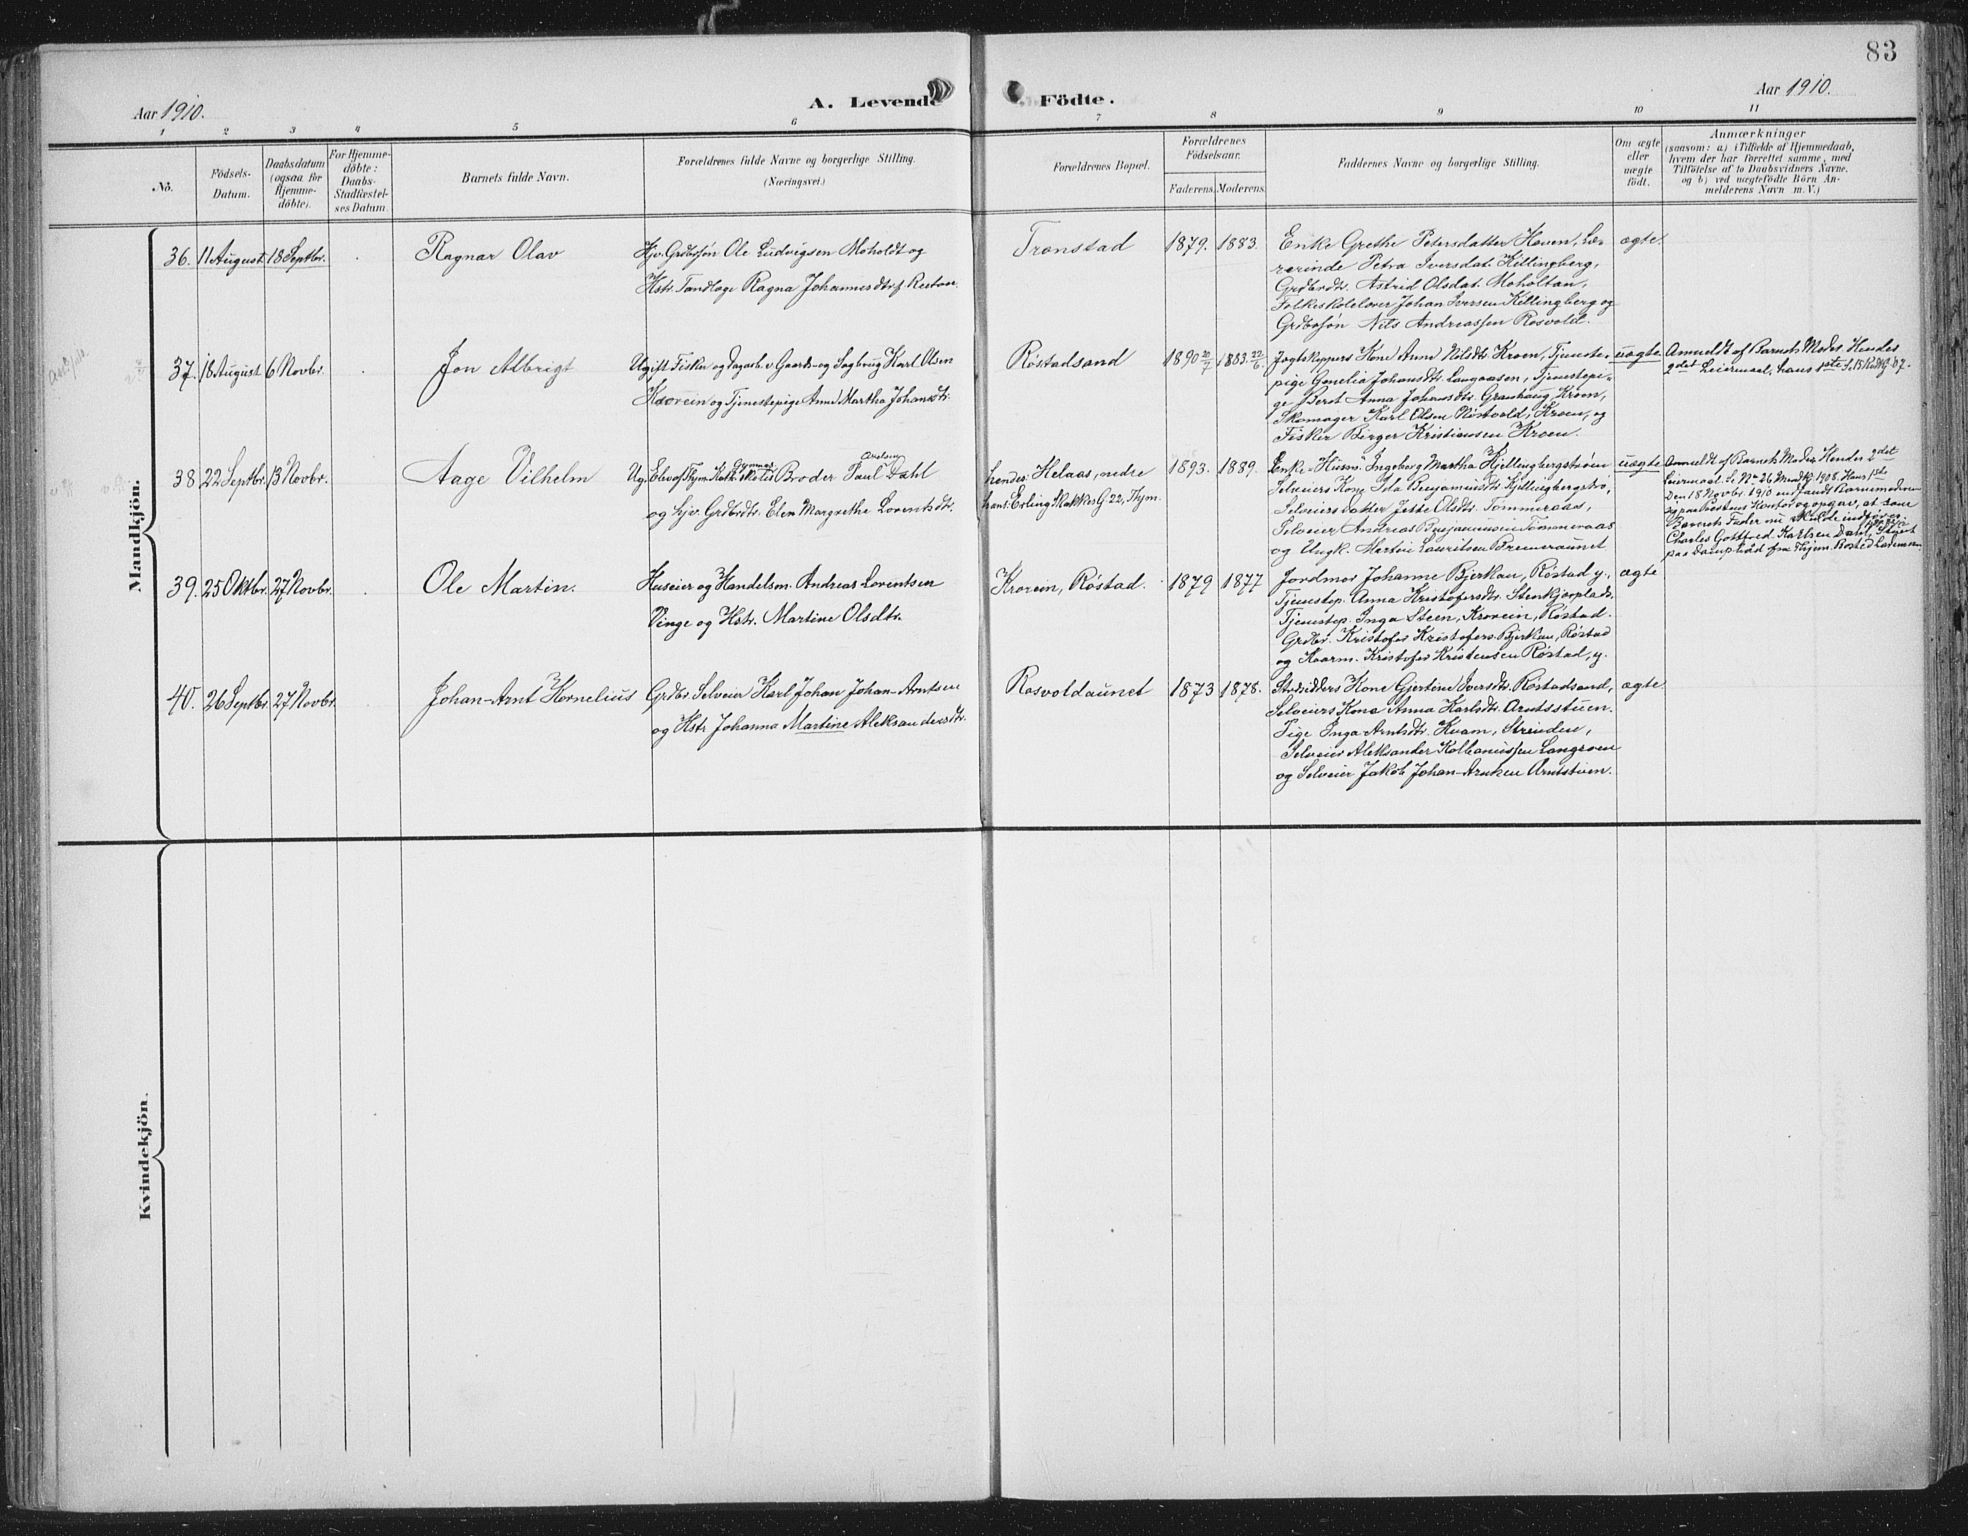 83
Aar 1910.
A. Levende Födte.
Aar 1910.
1 2 3 4 5 6 7 8 9 10 11
No.
Födsels-Datum.
Daabsdatum (ogsaa for Hjemme-döbte).
For Hjemme-döbte: Daabs-Stadfæstel-ses Datum.
Barnets fulde Navn.
Forældrenes fulde Navne og borgerlige Stilling.
(Næringsvei.)
Forældrenes Bopæl.
Forældrenes Födselsaar.
Faderens. Moderens.
Faddernes Navne og borgerlige Stilling.
Om ægte eller uægte födt.
Anmærkninger
(saasom: a) i Tilfælde af Hjemmedaab,
hvem der har forrettet samme, med
Tilföielse af to Daabsvidners Navne.
og b) ved uægtefödte Börn An-
melderens Navn m. V.)
Mandkjön.
36. 11 August 18 Septbr. Ragnar Olav
Grdbrsøn Ole Ludvigsen Moholdt og
Hstr. Ragna Johannesdtr.
Tronstad 1879. 1883.
Enke Grethe Petersdatter Haven, Læ-
rerinde Petra Iversdat. Killingberg,
Grdbrdtr. Astrid Olsdat. Moholtan,
Johan Iversen Killingberg og
Grdbrsøn Nils Andreassen Rosvold.
ægte
37. 18 August 6 Novbr. Jon Albrigt
Ugift Fisker og Dagarb. v. Gaards- og Sagbrug Karl Olsen
og Tjenestepige Anne Martha Johansdtr.
Røstadsand 1890 20/7 1883. 22/6
Jagtskippers Kone Anne Kroen, Tjeneste-
pige Johansdtr. Langaasen, Tjenestepi-
ge Anna Johansdtr. Granhaug, Kroen,
Skomager Karl Olsen Røstvold, Kroen, og
Fisker Birger Kristiansen Kroen.
uægte
Anmeldt af Barnets Moder. Hendes
2det Leiermaal, hans 1ste
38. 22 Septbr. 13 Novbr. Aage Vilhelm
Broder Paul Dahl
og hjv. Grdbrdtr. Elen Margrethe Lorentsdtr.
hendes: Helaas, nedre
hans: Erling Skakkes G 22, Thjm.
1893. 1889.
Enke Ingeborg Martha Kjellingbergstrøen
Selveiers Kone Ida Benjaminsdtr.
Selveiers datter Jette Olsdtr. Tømmeraas,
Selveier Andreas Benjaminsen Tømmeraas
og Ungk. Martin Lauritsen Bremeraunet
uægte
Anmeldt af Barnets Moder. Hendes 2det
Leiermaal. 1908. Hans 1ste
Den 18 Novbr. 1910 indfandt Barnemoderen
sig paa Prestens Kontor og opgav, at som
Barnets Fader nu skulde indføres:
Charles Gottfred Karlsen Dahl,
39. 25 Oktbr. 27 Novbr. Ole Martin.
Huseier og Handelsm. Andreas Lorentsen
Vinge og Hstr. Martine Olsdtr.
Krovein, Røstad. 1879 1877
Jordmor Johanne Bjerkan, Røstad y.,
Tjenestep. Anna Kristofersdtr. Stenkjærplads,
Tjenestep. Inga Steen, Krovein, Røstad.
Grdbr. Kristofer Kristofers. Bjerkan, Røstad
og Kaarm. Kristofer Kristensen Røstad, y.
ægte
40. 26 Septbr. 27 Novbr. Johan-Arnt Kornelius
Grdbr. Selveier Karl Johan Johan-Arntsen
og Hstr Johanna Martine Aleksandersdtr.
Rosvoldaunet 1873 1878.
Kone Gjertine Iversdtr. Røstadsand,
Selveiers Kone Anna Karlsdtr. Arntsstuen.
Pige Inga Arntsdtr. Kvam, Strinden,
Selveier Aleksander Kolbanussen Langroen
og Selveier Jakob Johan-Arntsen Arntstuen.
ægte
Kvindekjön.